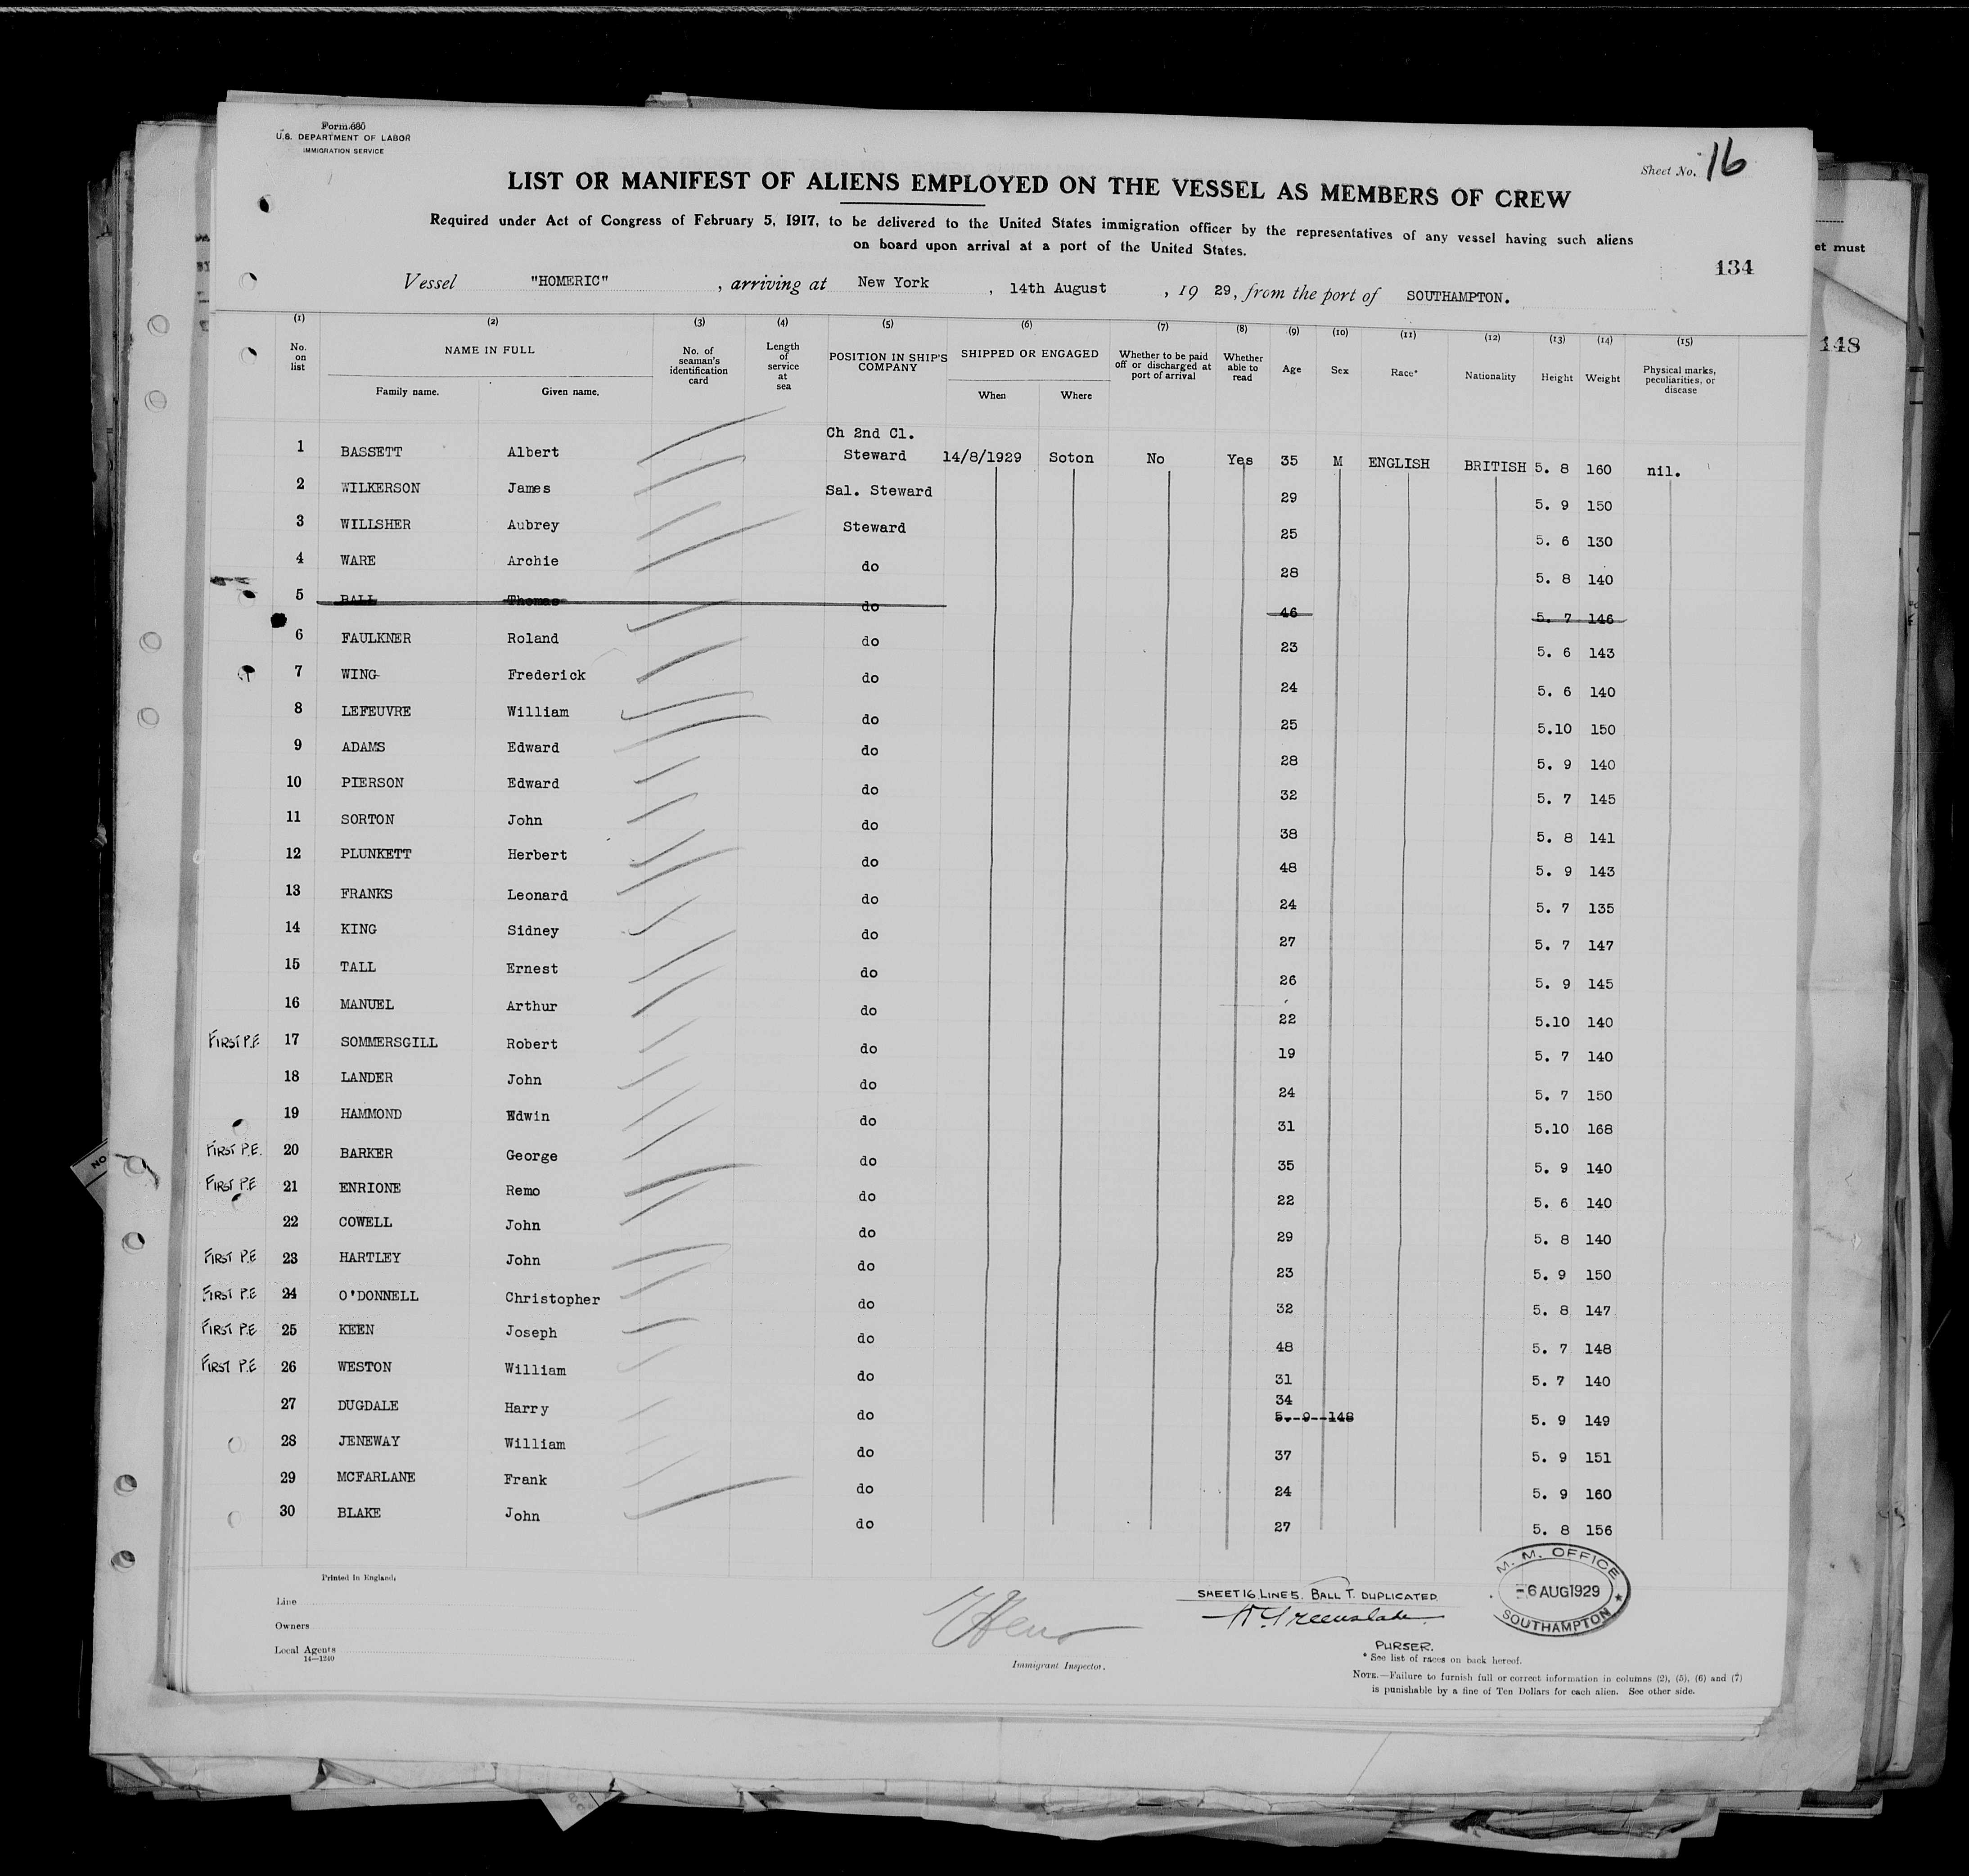 Form 680
U.S. DEPARTMENT OF LABOR
IMMIGRATION SERVICE
Sheet No. 16
LIST OR MANIFEST OF ALIENS EMPLOYED ON THE VESSEL AS MEMBERS OF CREW
Required under Act of Congress of February 5, 1917, to be delivered to the United States immigration officer by the representatives of any vessel having such aliens
on board upon arrival at a port of the United States.
et must
134
Vessel "HOMERIC", arriving at New York, 14th August, 19 29, from the port of SOUTHAMPTON.
148
(1) (2) (3) (4) (5) (6) (7) (8) (9) (10) (11) (12) (13) (14) (15)
No. on list NAME IN FULL Family name. Given name. No. of seaman's identification card Length of service at sea POSITION IN SHIP'S COMPANY SHIPPED OR ENGAGED When Where Whether to be paid off or discharged at port of arrival Whether able to read Age Sex Race* Nationality Height Weight Physical marks, peculiarities, or disease
1 BASSETT Albert Ch 2nd Cl. Steward 14/8/1929 Soton No Yes 35 M ENGLISH BRITISH 5. 8 160 nil.
2 WILKERSON James Sal. Steward 29 5. 9 150
3 WILLSHER Aubrey Steward 25 5. 6 130
4 WARE Archie do 28 5. 8 140
5 BALL Thomas do 46 5. 7 146
6 FAULKNER Roland do 23 5. 6 143
7 WING Frederick do 24 5. 6 140
8 LEFEUVRE William do 25 5.10 150
9 ADAMS Edward do 28 5. 9 140
10 PIERSON Edward do 32 5. 7 145
11 SORTON John do 38 5. 8 141
12 PLUNKETT Herbert do 48 5. 9 143
13 FRANKS Leonard do 24 5. 7 135
14 KING Sidney do 27 5. 7 147
15 TALL Ernest do 26 5. 9 145
16 MANUEL Arthur do 22 5.10 140
FIRST P.E 17 SOMMERSGILL Robert do 19 5. 7 140
18 LANDER John do 24 5. 7 150
19 HAMMOND Edwin do 31 5.10 168
FIRST P.E. 20 BARKER George do 35 5. 9 140
FIRST P.E 21 ENRIONE Remo do 22 5. 6 140
22 COWELL John do 29 5. 8 140
FIRST P.E 23 HARTLEY John do 23 5. 9 150
FIRST P.E 24 O'DONNELL Christopher do 32 5. 8 147
FIRST P.E 25 KEEN Joseph do 48 5. 7 148
FIRST P.E 26 WESTON William do 31 5. 7 140
27 DUGDALE Harry do 34 5.--9--148 5. 9 149
28 JENEWAY William do 37 5. 9 151
29 MCFARLANE Frank do 24 5. 9 160
30 BLAKE John do 27 5. 8 156
Printed in England.
Line
Owners
Local Agents
14—1240
Immigrant Inspector.
SHEET 16 LINE 5. BALL T. DUPLICATED.
W. Greenslade
PURSER.
M. M. OFFICE
-6 AUG 1929
SOUTHAMPTON
* See list of races on back hereof.
NOTE.—Failure to furnish full or correct information in columns (2), (5), (6) and (7)
is punishable by a fine of Ten Dollars for each alien. See other side.
NO